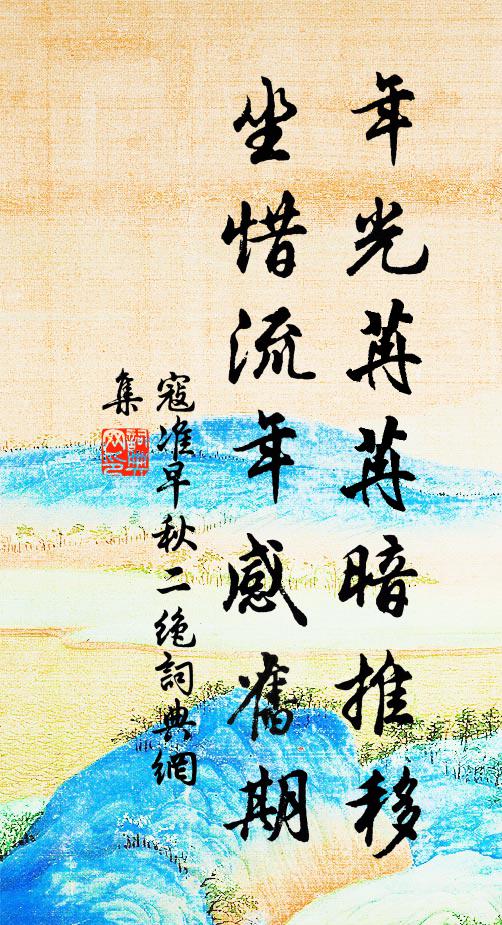 年光苒苒暗推移
坐惜流年感舊期
寇准早秋二绝詞典網
集